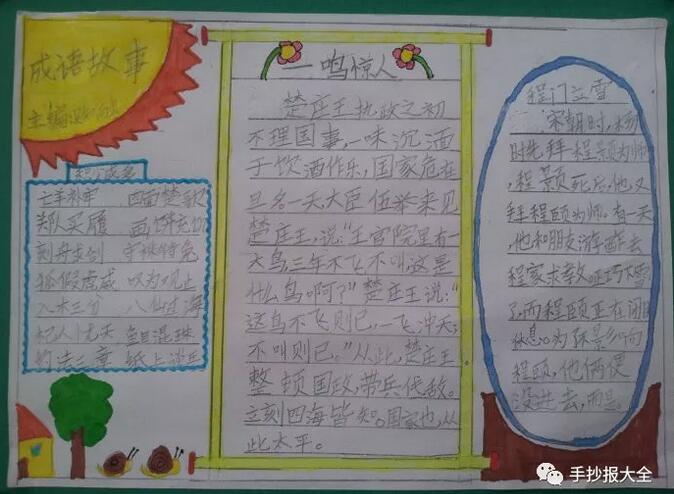 成语故事
主编
积小成多
亡羊补牢 四面楚歌
郑人买履 画饼充饥
刻舟求剑 守株待兔
狐假虎威 叹为观止
入木三分 八仙过海
杞人忧天 鱼目混珠
约法三章 纸上谈兵
一鸣惊人
楚庄王执政之初
不理国事,一味沉湎
于饮酒作乐,国家危在
旦名一天大臣伍举来见
楚庄王,说:“王宫院里有一
大鸟,三年不飞不叫,这是
什么鸟啊?”楚庄王说:“
这鸟不飞则已,一飞冲天;
不叫则已。”从此,楚庄王
整顿国政,带兵伐敌。
立刻四海皆知。国家也,从
此太平。
程门立雪
宋朝时,杨
时先拜程颢为师
,程颢死后,他又
拜程颐为师。有一天
,他和朋友游酢去
程家求教正巧下雪
了,而程颐正在闭目
休息。为不影响
程颐,他俩便
没进去,而是。
手抄报大全